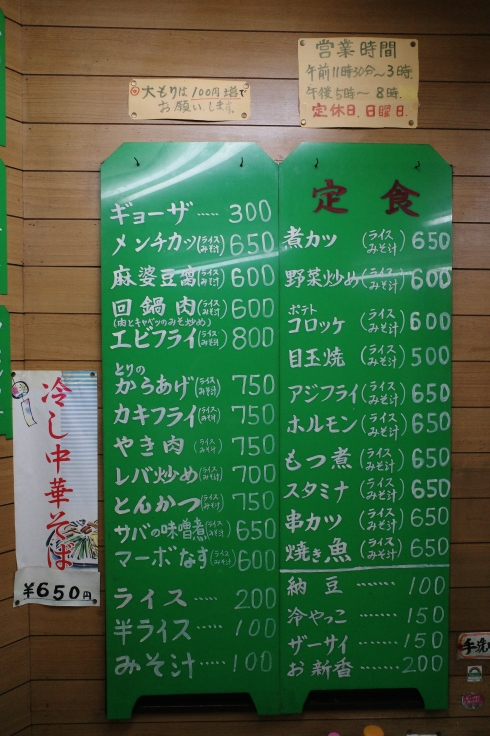 営業時間
午前11時30分〜3時
午後5時〜8時.
定休日.日曜日.
大もりは100円増で
お願いします。
ギョーザ‥‥‥300
メンチカツ(ライスみそ汁)650
麻婆豆腐(ライスみそ汁)600
回鍋肉(ライスみそ汁)600
(肉とキャベツのみそ炒め)
エビフライ(ライスみそ汁)800
とりの
からあげ(ライスみそ汁)750
カキフライ(ライスみそ汁)750
やき肉(ライスみそ汁)750
レバ炒め(ライスみそ汁)700
とんかつ(ライスみそ汁)750
サバの味噌煮(ライスみそ汁)650
マーボなす(ライスみそ汁)600
ライス‥‥‥200
半ライス‥‥‥100
みそ汁‥‥‥100
定食
煮カツ(ライスみそ汁)650
野菜炒め(ライスみそ汁)600
ポテト
コロッケ(ライスみそ汁)600
目玉焼(ライスみそ汁)500
アジフライ(ライスみそ汁)650
ホルモン(ライスみそ汁)650
もつ煮(ライスみそ汁)650
スタミナ(ライスみそ汁)650
串カツ(ライスみそ汁)650
焼き魚(ライスみそ汁)650
納豆‥‥‥100
冷やっこ‥‥‥150
ザーサイ‥‥‥150
お新香‥‥‥200
冷し中華そば
¥650円
手洗